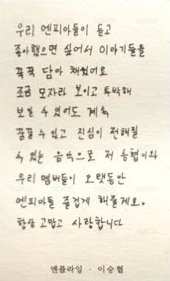 우리 엔피아들이 듣고
좋아했으면 싶어서 이야기들을
꾹꾹 담아 채웠어요
조금 모자라 보이고 투박해
보일 수 있어도 계속
꿈꿀 수 있고 진심이 전해질
수 있는 음악으로 저 승협이와
우리 멤버들이 오랫동안
엔피아들 즐겁게 해줄게요.
항상 고맙고 사랑합니다
엔플라잉 · 이승협